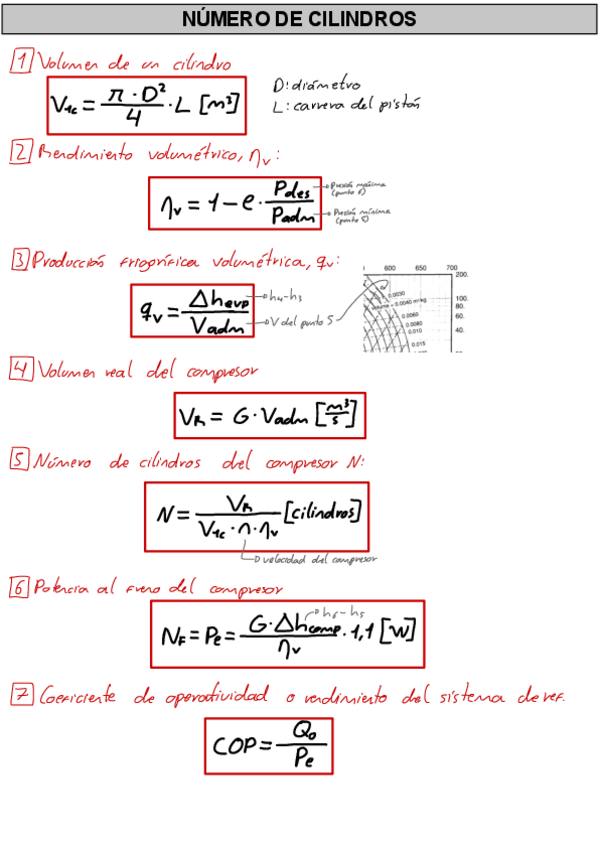 NÚMERO DE CILINDROS
1 Volumen de un cilindro
V1c = π · D² / 4 · L [m³]
D: diámetro
L: carrera del pistón
2 Rendimiento volumétrico, ηv:
ηv = 1 – e · Pdes / Padm
Presión máxima
(punto 6)
Presión mínima
(punto 5)
3 Producción frigorífica volumétrica, qv:
qv = Δhevp / Vadm
h4-h3
V del punto 5
600 650 700
200.
100.
80.
60.
40.
0.0030
volume = 0.0040 m³/kg
0.0060
0.0080
0.010
0.015
4 Volumen real del compresor
VR = G · Vadm [m³/s]
5 Número de cilindros del compresor N:
N = VR / V1c · n · ηv [cilindros]
velocidad del compresor
6 Potencia al freno del compresor
h6-h5
NF = Pe = G · Δhcomp. / ηv · 1,1 [W]
7 Coeficiente de operatividad o rendimiento del sistema de ref.
COP = Qo / Pe